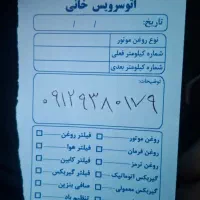 اتوسرویس خانی
تاریخ: / /
نوع روغن موتور
شماره کیلومتر فعلی
شماره کیلومتر بعدی
توضیحات:
۰۹۱۲۹۳۸۰۱۷۹
روغن موتور
فیلتر روغن
روغن فرمان
فیلتر هوا
روغن ترمز
فیلتر کابین
گیربکس اتوماتیک
فیلتر گیربکس
گیربکس معمولی
صافی بنزین
تنظیم باد